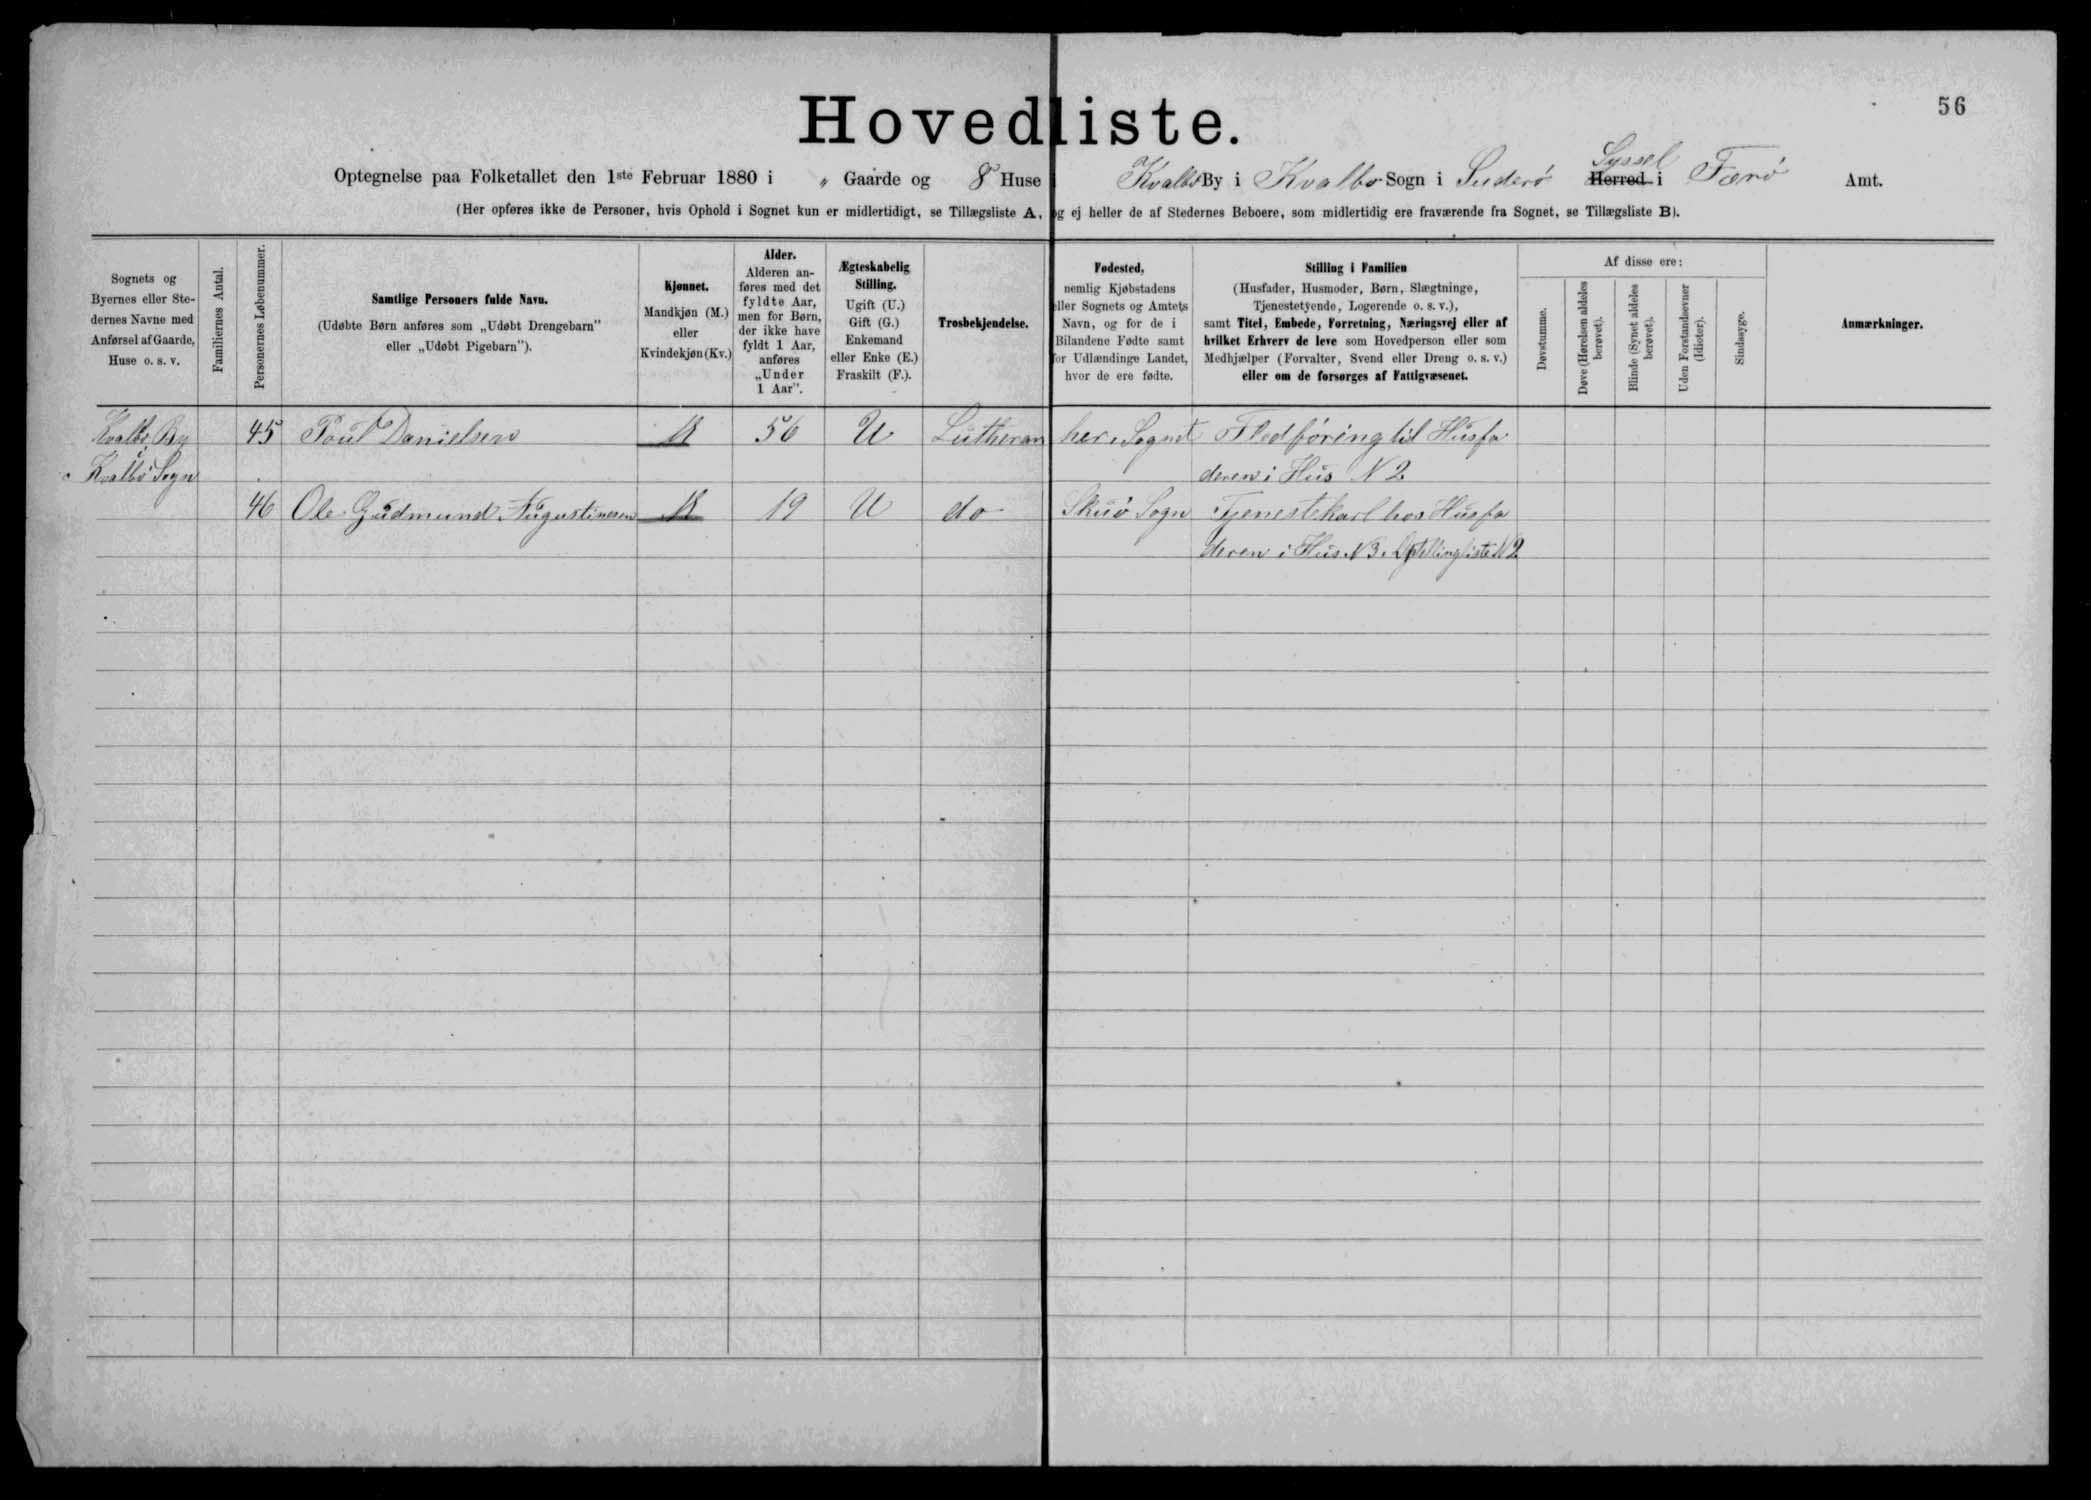 56
Hovedliste.
Optegnelse paa Folketallet den 1ste Februar 1880 i „ Gaarde og 8 Huse i Kvalbø By i Kvalbø Sogn i Suderø Syssel Herred i Færø Amt.
(Her opføres ikke de Personer, hvis Ophold i Sognet kun er midlertidigt, se Tillægsliste A, og ej heller de af Stedernes Beboere, som midlertidig ere fraværende fra Sognet, se Tillægsliste B).
Sognets og
Byernes eller Ste-
dernes Navne med
Anførsel af Gaarde,
Huse o. s. v.
Familiernes Antal.
Personernes Løbenummer.
Samtlige Personers fulde Navn.
(Udøbte Børn anføres som „Udøbt Drengebarn”
eller „Udøbt Pigebarn”).
Kjønnet.
Mandkjøn (M.)
eller
Kvindekjøn (Kv.)
Alder.
Alderen an-
føres med det
fyldte Aar,
men for Børn,
der ikke have
fyldt 1 Aar,
anføres
„Under
1 Aar”.
Ægteskabelig
Stilling.
Ugift (U.)
Gift (G.)
Enkemand
eller Enke (E.)
Fraskilt (F.).
Trosbekjendelse.
Fødested,
nemlig Kjøbstadens
eller Sognets og Amtets
Navn, og for de i
Bilandene Fødte samt
for Udlændinge Landet,
hvor de ere fødte.
Stilling i Familien
(Husfader, Husmoder, Børn, Slægtninge,
Tjenestetyende, Logerende o. s. v.),
samt Titel, Embede, Forretning, Næringsvej eller af
hvilket Erhverv de leve som Hovedperson eller som
Medhjælper (Forvalter, Svend eller Dreng o. s. v.)
eller om de forsørges af Fattigvæsenet.
Af disse ere:
Døvstumme.
Døve (Hørelsen aldeles
berøvet).
Blinde (Synet aldeles
berøvet).
Uden Forstandsevner
(Idioter).
Sindssyge.
Anmærkninger.
Kvalbø By 45 Poul Danielsen M 56 U Lutheran her i Sognet Fledføring til Husfa
i Kvalbø Sogn deren i Hus N 2
46 Ole Gudmund Augustinesen M 19 U do Skuø Sogn Tjenestekarl hos Husfa
deren i Hus N 3. Optellingsliste N 2